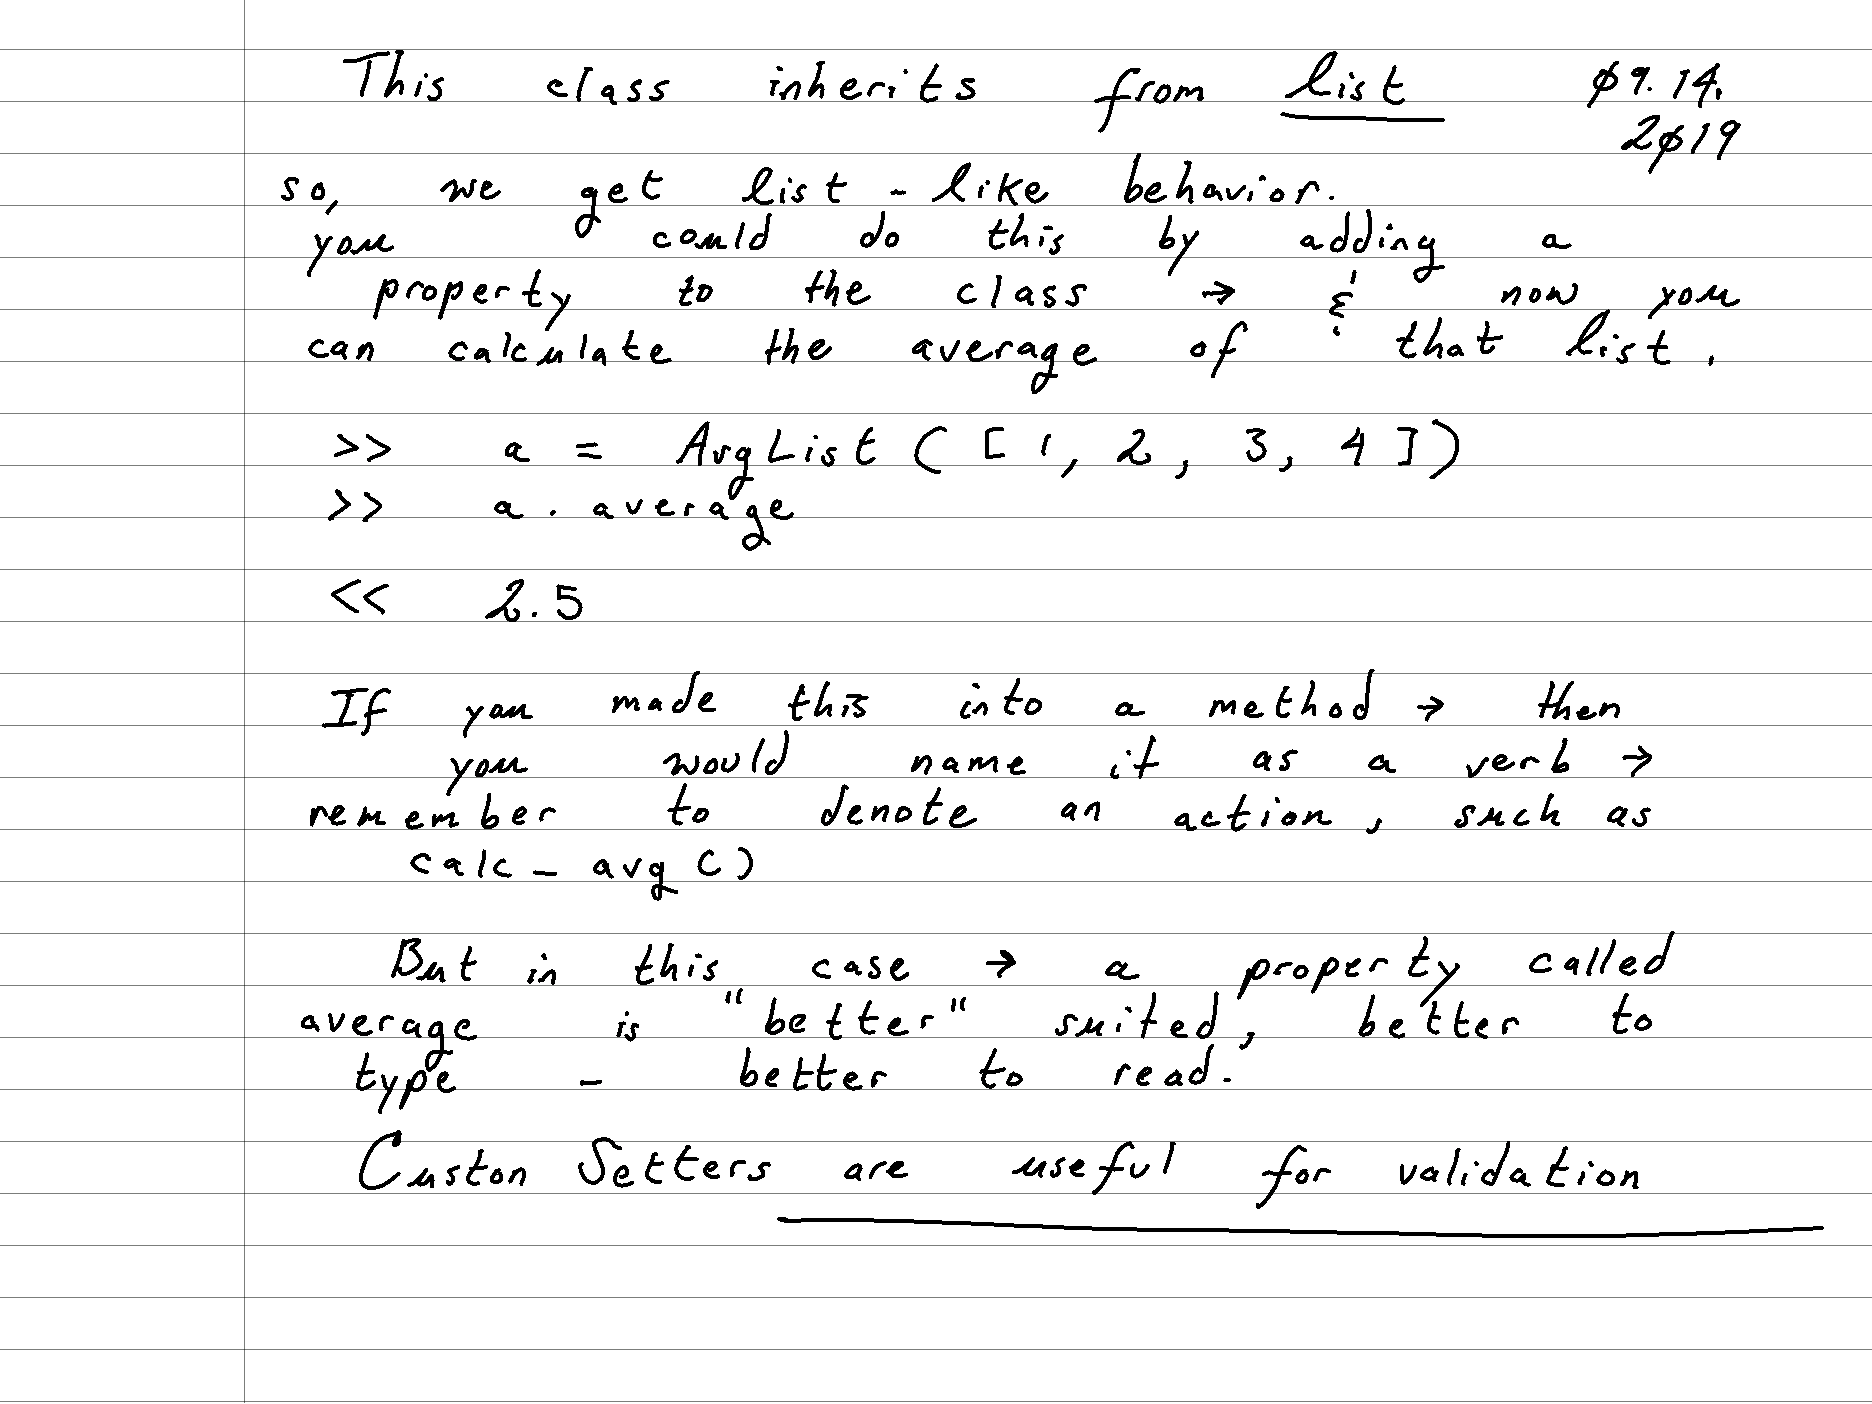 This class inherits from list ø9.14.
2ø19
so, we get list - like behavior.
you could do this by adding a
property to the class → & now you
can calculate the average of that list.
>> a = AvgList ( [ 1, 2, 3, 4 ] )
>> a . average
<< 2.5
If you made this into a method → then
you would name it as a verb →
remember to denote an action, such as
calc _ avg ( )
But in this case → a property called
average is "better" suited, better to
type - better to read.
Custon Setters are useful for validation